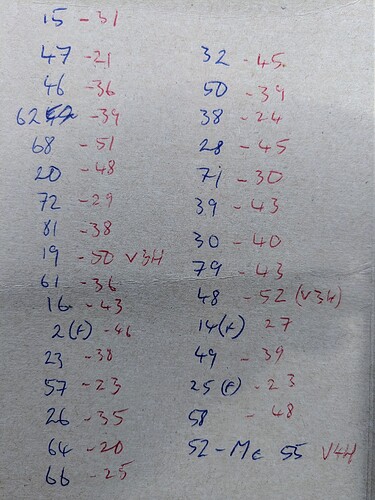 15 - 31
47 - 21
46 - 36
62 - 39
68 - 51
20 - 48
72 - 29
81 - 38
19 - 50 V3H
61 - 36
16 - 43
2(t) - 46
23 - 38
57 - 23
26 - 35
64 - 20
66 - 25
32 - 45
50 - 39
38 - 24
28 - 45
71 - 30
39 - 43
30 - 40
79 - 43
48 - 52 (V3H)
14(t) 27
49 - 39
25(t) - 23
58 - 48
52 - Me 55 V4H